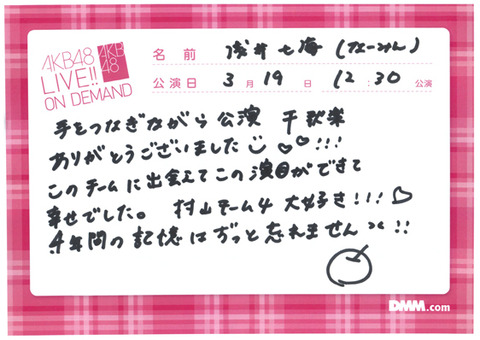 AKB48
LIVE!!
ON DEMAND
AKB
48
名前 浅井七海(なーみん)
公演日 3月19日 12:30公演
手をつなぎながら公演 千秋楽
ありがとうございました!!!
このチームに出会えてこの演目ができて
幸せでした。 村山チーム4 大好き!!!
4年間の記憶はずっと忘れません!!
DMM.com